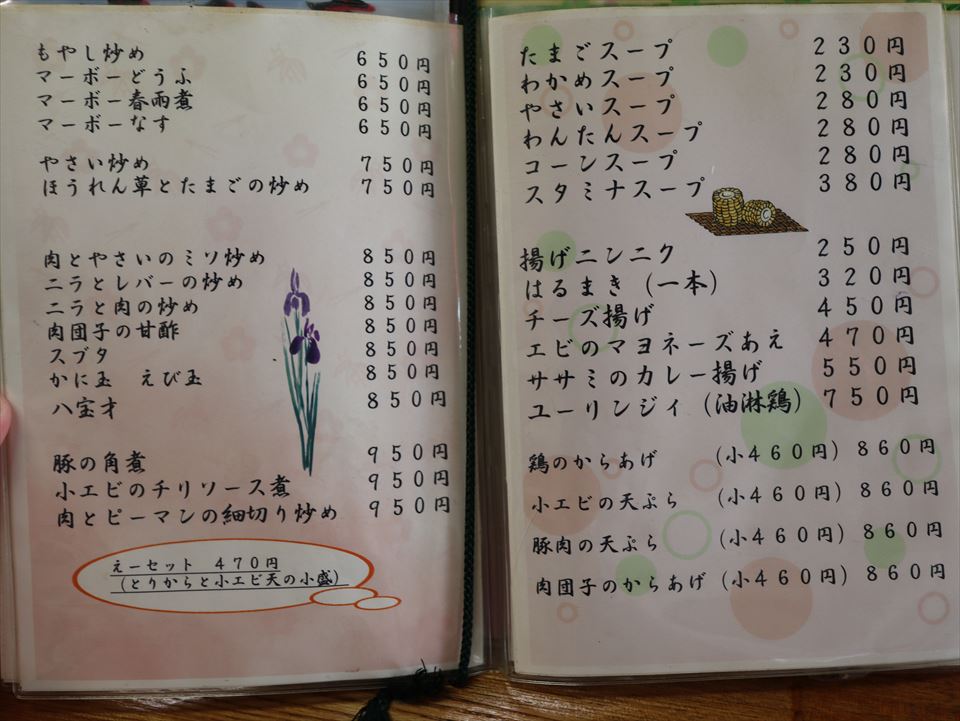 もやし炒め ６５０円
マーボーどうふ ６５０円
マーボー春雨煮 ６５０円
マーボーなす ６５０円
やさい炒め ７５０円
ほうれん草とたまごの炒め ７５０円
肉とやさいのミソ炒め ８５０円
ニラとレバーの炒め ８５０円
ニラと肉の炒め ８５０円
肉団子の甘酢 ８５０円
スブタ ８５０円
かに玉　えび玉 ８５０円
八宝才 ８５０円
豚の角煮 ９５０円
小エビのチリソース煮 ９５０円
肉とピーマンの細切り炒め ９５０円
えーセット　４７０円
（とりからと小エビ天の小盛）
たまごスープ ２３０円
わかめスープ ２３０円
やさいスープ ２８０円
わんたんスープ ２８０円
コーンスープ ２８０円
スタミナスープ ３８０円
揚げニンニク ２５０円
はるまき（一本） ３２０円
チーズ揚げ ４５０円
エビのマヨネーズあえ ４７０円
ササミのカレー揚げ ５５０円
ユーリンジイ（油淋鶏） ７５０円
鶏のからあげ （小４６０円）８６０円
小エビの天ぷら （小４６０円）８６０円
豚肉の天ぷら （小４６０円）８６０円
肉団子のからあげ（小４６０円）８６０円